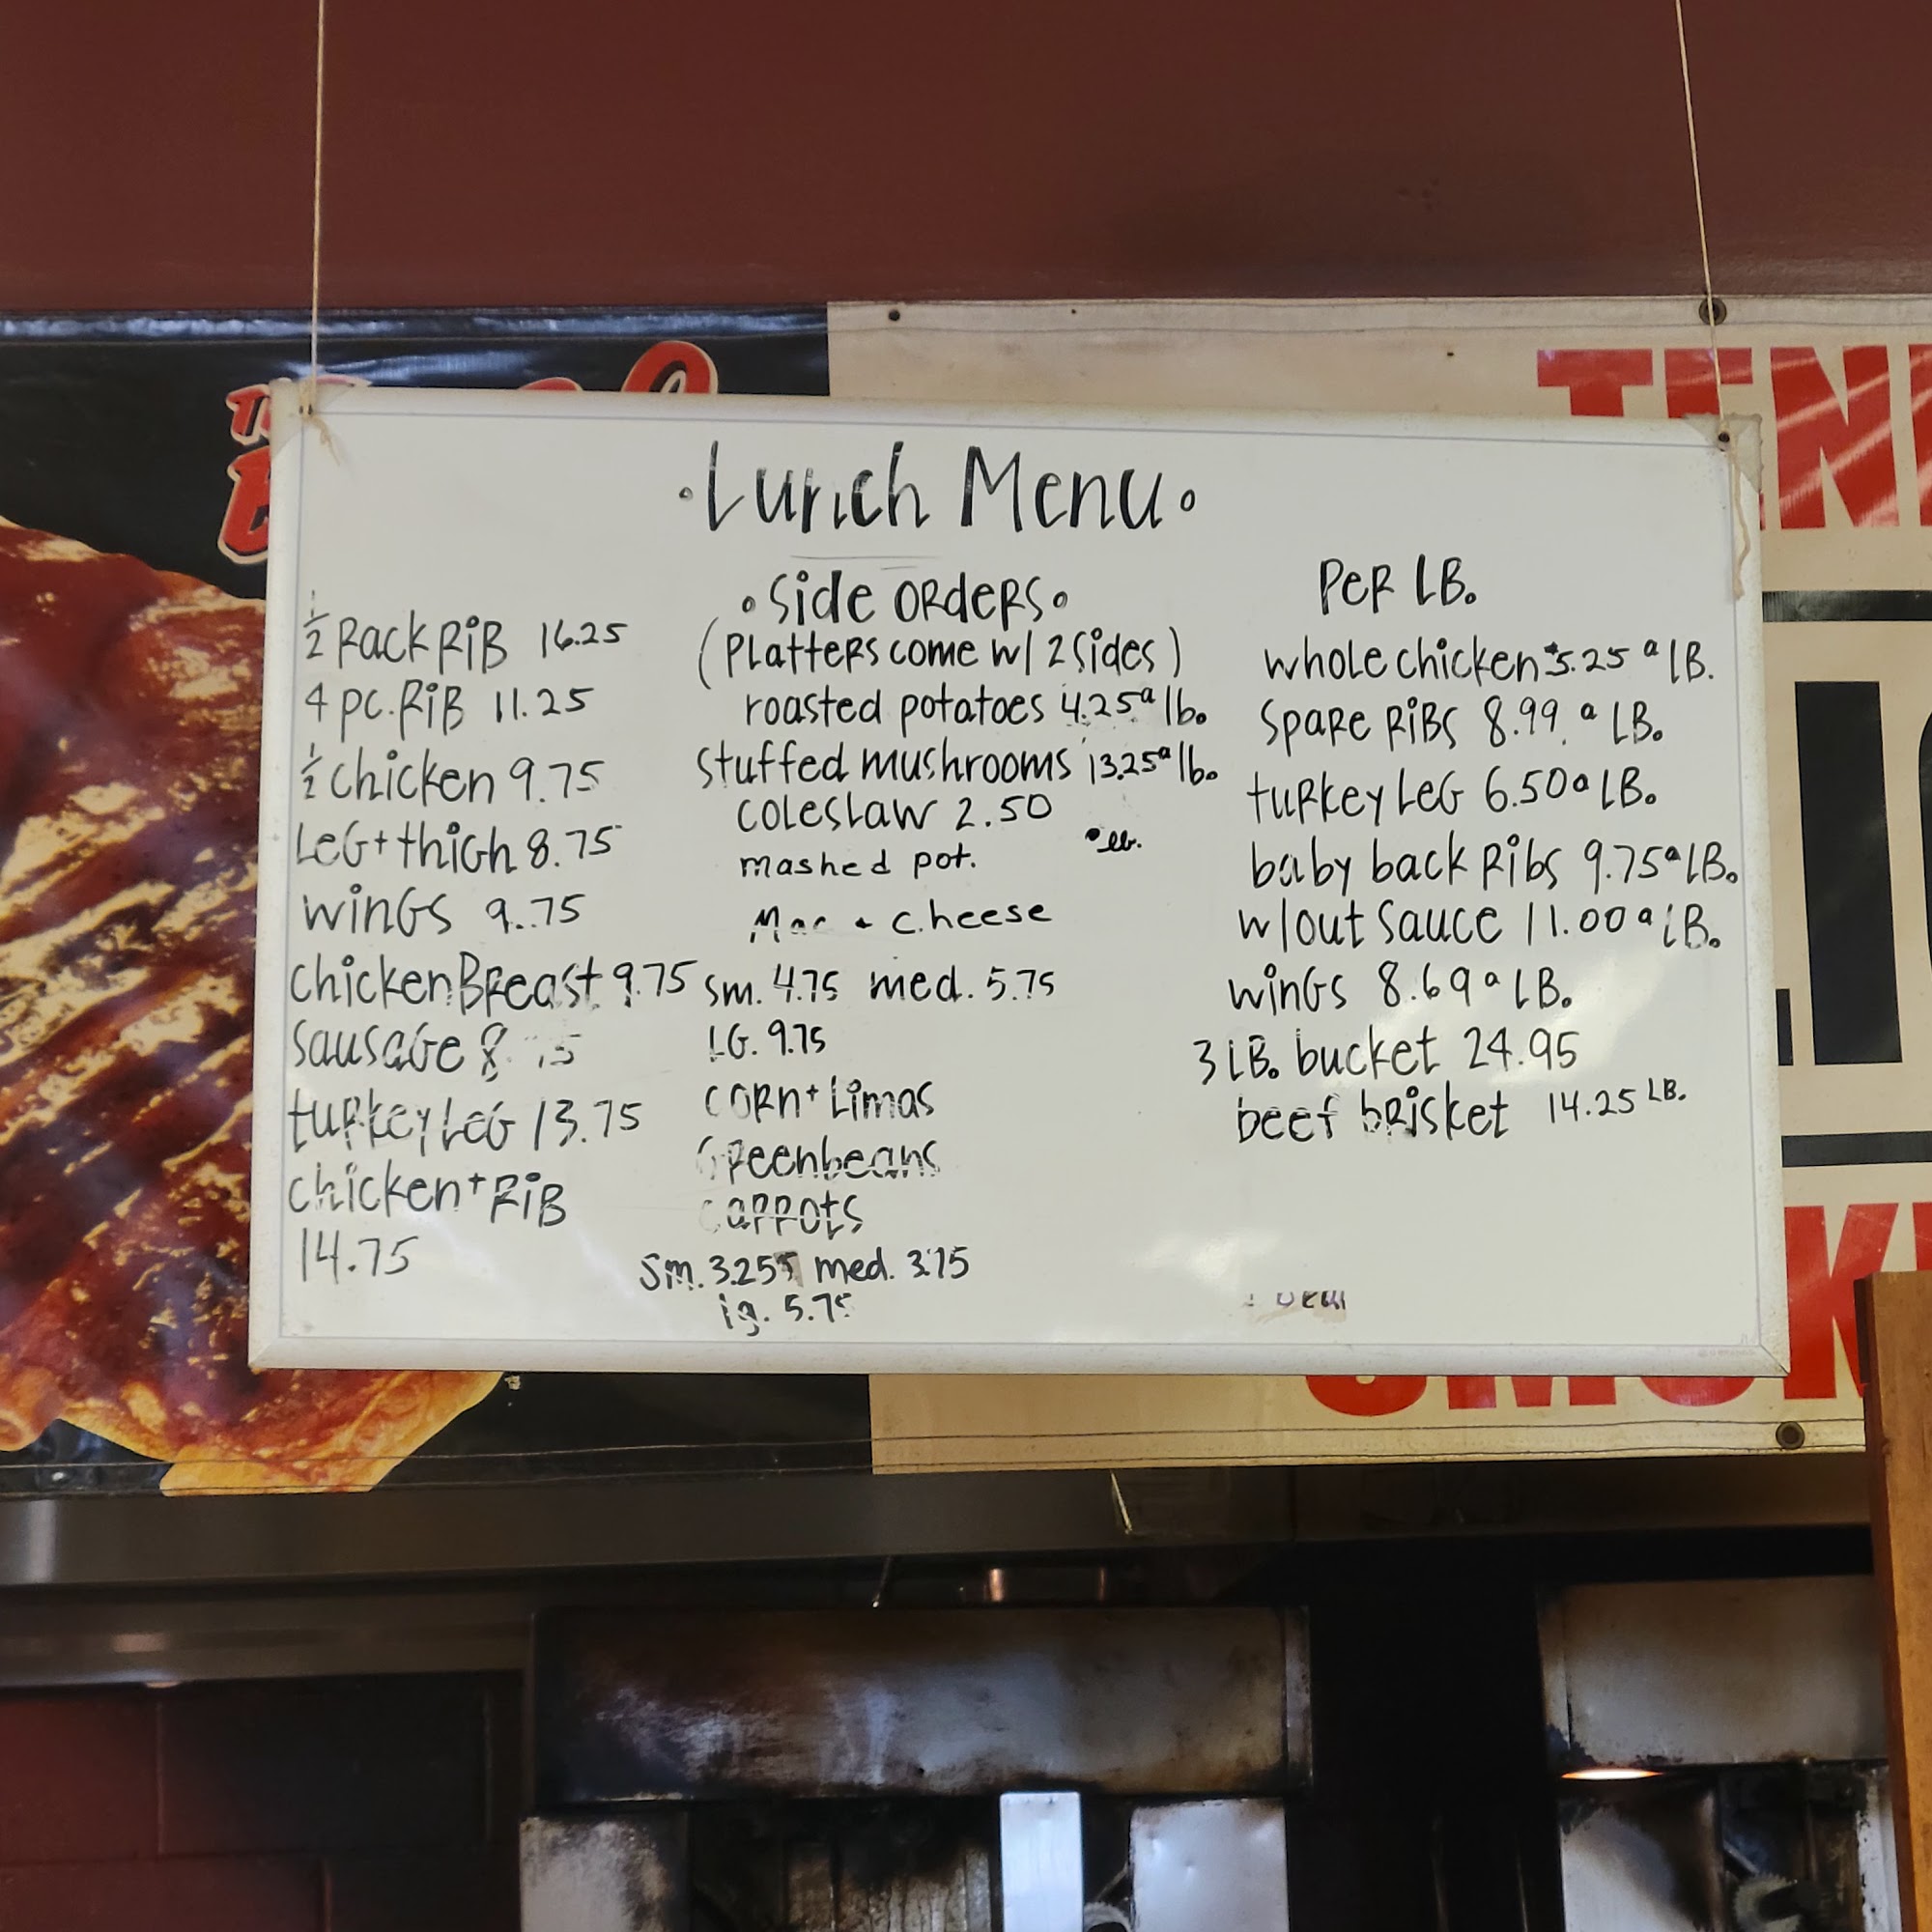 •Lunch Menu•
½ Rack Rib 16.25
4 pc. Rib 11.25
½ chicken 9.75
Leg + thigh 8.75
wings 9.75
chicken Breast 9.75
sausage 8.75
turkey Leg 13.75
chicken + Rib
14.75
•Side ORders•
(Platters come w/ 2 Sides)
roasted potatoes 4.25 a lb.
Stuffed mushrooms 13.25 a lb.
coleslaw 2.50
a lb.
mashed pot.
Mac + cheese
sm. 4.75 med. 5.75
LG. 9.75
corn + Limas
Greenbeans
carrots
Sm. 3.25 med. 3.75
lg. 5.75
Per LB.
whole chicken $5.25 a LB.
Spare Ribs 8.99 a LB.
turkey Leg 6.50 a LB.
baby back Ribs 9.75 a LB.
w/out Sauce 11.00 a LB.
wings 8.69 a LB.
3 LB. bucket 24.95
beef brisket 14.25 LB.
TEN
SMOK